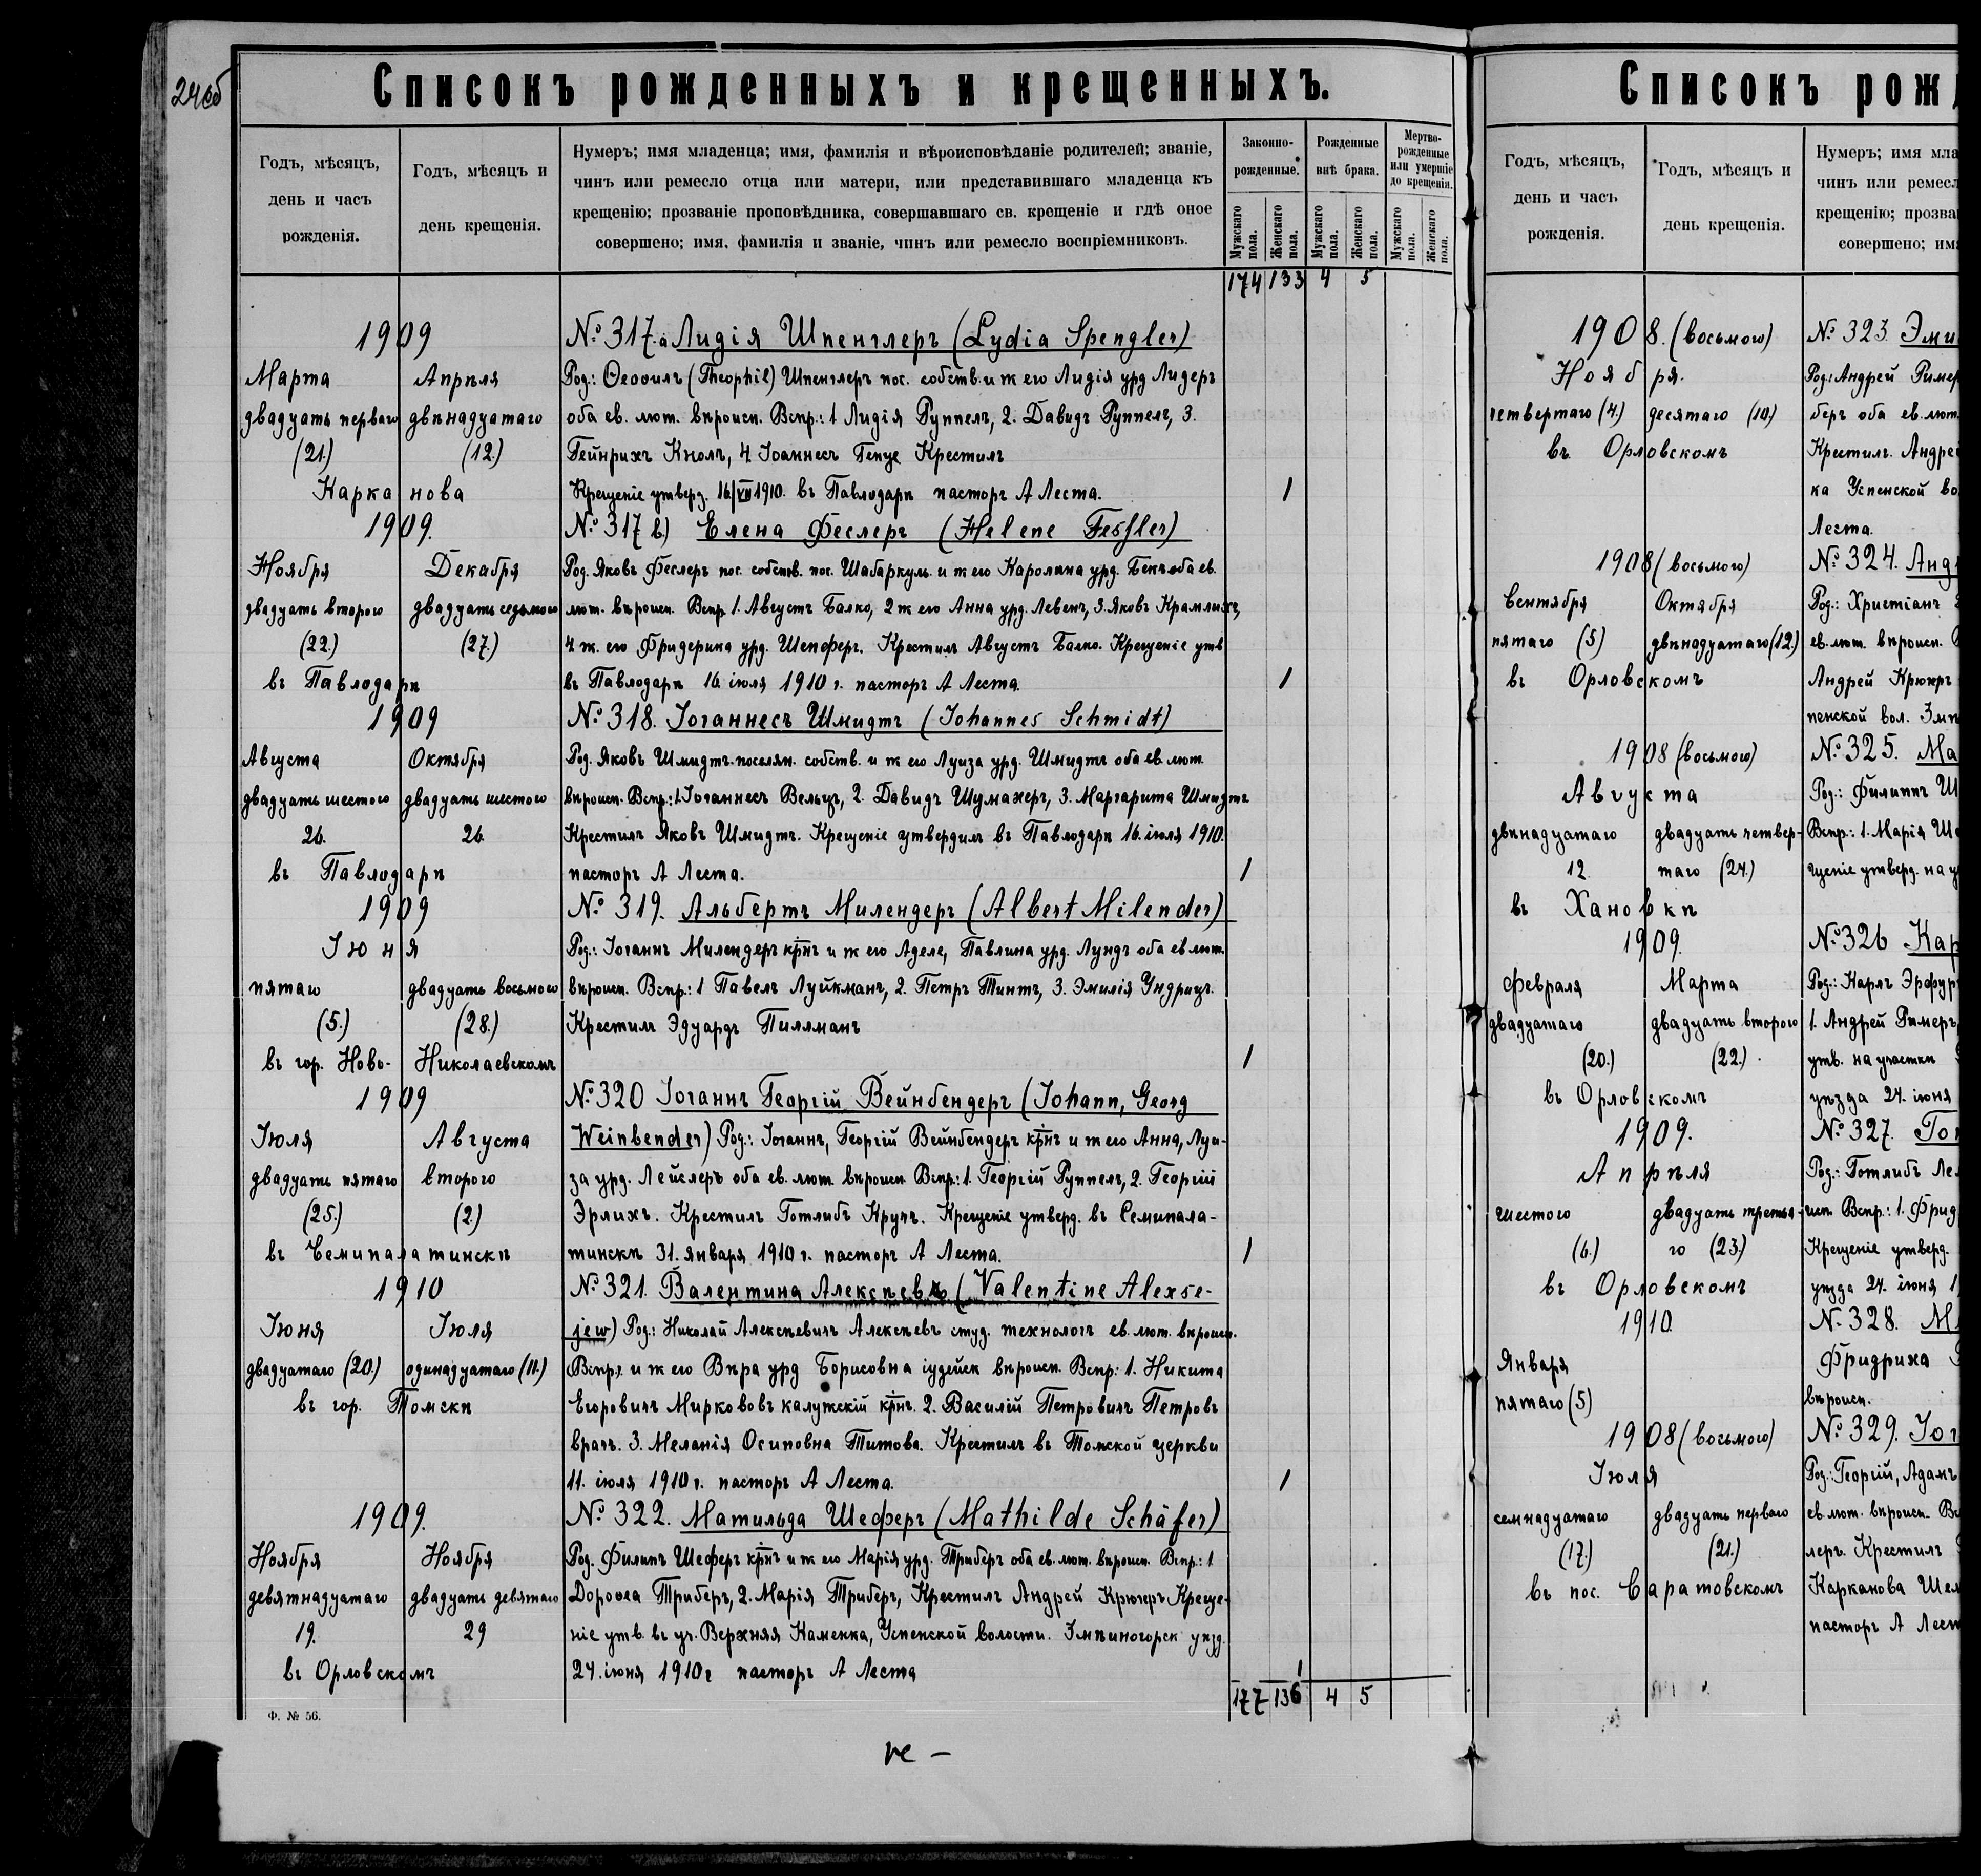 24об
Списокъ рожденныхъ и крещенныхъ.
Годъ, мѣсяцъ, день и часъ рожденія.
Годъ, мѣсяцъ и день крещенія.
Нумеръ; имя младенца; имя, фамилія и вѣроисповѣданіе родителей; званіе,
чинъ или ремесло отца или матери, или представившаго младенца къ
крещенію; прозваніе проповѣдника, совершавшаго св. крещеніе и гдѣ оное
совершено; имя, фамилія и званіе, чинъ или ремесло воспріемниковъ.
Законно-рожденные.
Рожденные внѣ брака.
Мертво-рожденные или умершіе до крещенія.
Мужскаго пола. Женскаго пола. Мужскаго пола. Женскаго пола. Мужскаго пола. Женскаго пола.
174 133 4 5
1909 № 317.а Лидія Шпенглеръ (Lydia Spengler)
Марта Апрѣля Род.: Ѳеофилъ (Theophil) Шпенглеръ пос. собств. и ж его Лидія урд Лидеръ
двадцать перваго двѣнадцатаго оба ев. лют. вѣроисп. Вспр.: 1 Лидія Руппель, 2. Давидъ Руппель, 3.
(21.) (12.) Гейнрихъ Кноль, 4. Іоаннесъ Генце Крестилъ
Карканова Крещеніе утверз. 16/VII 1910. въ Павлодарѣ пасторъ А Леста. 1
1909. № 317 b.) Елена Феслеръ (Helene Fessler)
Ноября Декабря Род. Яковъ Феслеръ пос. собств. пос. Шабаркуль. и ж его Каролина урд. Бекъ оба ев.
двадцать второго двадцать седьмого лют. вѣроисп. Вспр 1. Августъ Балко, 2 ж его Анна урд. Левенъ, 3. Яковъ Крамлихъ,
(22.) (27.) 4 ж. его Фридерика урд. Шенферъ. Крестилъ Августъ Балко. Крещеніе утв
въ Павлодарѣ въ Павлодарѣ 16. іюля 1910 г. пасторъ А Леста. 1
1909 № 318. Іоганнесъ Шмидтъ (Johannes Schmidt)
Августа Октября Род. Яковъ Шмидтъ. поселян. собств. и ж его Луиза урд. Шмидтъ оба ев. лют.
двадцать шестого двадцать шестого вѣроисп. Вспр.: 1. Іоганнесъ Вельцъ, 2. Давидъ Шумахеръ, 3. Маргарита Шмидтъ
26. 26. Крестилъ Яковъ Шмидтъ. Крещеніе утвердилъ въ Павлодарѣ 16. іюля 1910.
въ Павлодарѣ пасторъ А Леста. 1
1909 № 319. Альбертъ Милендеръ (Albert Milender)
Іюня Род.: Іоганнъ Милендеръ крнъ и ж его Аделе, Павлина урд. Лундъ оба ев лют.
пятаго двадцать восьмого вѣроисп. Вспр.: 1 Павелъ Луйкманъ, 2. Петръ Тинтъ, 3. Эмилія Ундрицъ.
(5.) (28.) Крестилъ Эдуардъ Пиллманъ
въ гор. Ново-Николаевскомъ 1
1909 № 320 Іоганнъ Георгій Вейнбендеръ (Johann, Georg
Іюля Августа Weinbender) Род.: Іоганнъ, Георгій Вейнбендеръ крнъ и ж его Анна, Луи-
двадцать пятаго второго за урд. Лейслеръ оба ев. лют. вѣроисп. Вспр.: 1. Георгій Руппель, 2. Георгій
(25.) (2.) Эрлихъ. Крестилъ Готлибъ Кручъ. Крещеніе утверд. въ Семипала-
въ Семипалатинскѣ тинскѣ 31. января 1910 г. пасторъ А Леста. 1
1910 № 321. Валентина Алексѣевъ (Valentine Alexse-
Іюня Іюля jew) Род.: Николай Алексѣевичъ Алексѣевъ студ. технологъ ев. лют. вѣроисп.
двадцатаго (20.) одинадцатаго (11.) (Вспр). и ж его Вѣра урд Борисовна іудейск вѣроисп. Вспр: 1. Никита
въ гор. Томскѣ Егоровичъ Мирковъ калужскій крнъ. 2. Василій Петровичъ Петровъ
врачъ. 3. Меланія Осиповна Титова. Крестилъ въ Томской церкви
11. іюля 1910 г. пасторъ А Леста. 1
1909. № 322. Матильда Шеферъ (Mathilde Schäfer)
Ноября Ноября Род. Филипъ Шеферъ крнъ и ж его Марія урд. Триберъ оба ев. лют. вѣроисп. Вспр.: 1
девятнадцатаго двадцать девятаго Доровеа Триберъ, 2. Марія Триберъ, Крестилъ Андрей Крюгеръ Креще-
19. 29 ніе утв. въ уч. Верхняя Каменка, Успенской волости. Змѣиногорск уѣзд.
въ Орловскомъ 24. іюня 1910 г пасторъ А Леста 1
177 136 4 5
Ф. № 56.
Списокъ рожд
Годъ, мѣсяцъ, день и часъ рожденія.
Годъ, мѣсяцъ и день крещенія.
Нумеръ; имя мла
чинъ или ремесл
крещенію; прозва
совершено; им
1908. (восьмого) № 323. Эми
Ноября. Род.: АндрейРимер
четвертаго (4.) десятаго (10.) беръ оба ев. лют.
въ Орловскомъ Крестилъ. Андре
ка Успенской во
Леста.
1908 (восьмого) № 324. Анд
Сентября Октября Род.: Христіанъ
пятаго (5) двѣнадцатаго (12.) ев. лют. вѣроисп.
въ Орловскомъ Андрей Крюгеръ
пенской вол. Змѣ
1908 (восьмого) № 325. Ма
Августа Род.: Филиппъ Ш
двѣнадцатаго двадцать четвер- Вспр.: 1. Марія Ше
12. таго (24.) щеніе утверд. на у
въ Хановкѣ
1909. № 326 Кар
Февраля Марта Род.: Карлъ Эрфур
двадцатаго двадцать второго 1. Андрей Римеръ,
(20.) (22.) утв. на участкѣ
въ Орловскомъ уѣзда 24. іюня
1909. № 327. Го
Апрѣля Род.: Готлибъ Ле
шестого двадцать третья- исп. Вспр.: 1. Фрид
(6.) го (23.) Крещеніе утверд.
въ Орловскомъ уѣзда 24. іюня 1
1910. № 328. М
Января Фридриха
пятаго (5) вѣроисп.
1908 (восьмого) № 329. Іог
Іюля Род.: Георгій, Адамъ
семнадцатаго двадцать перваго ев. лют. вѣроисп. Вс
(17.) (21.) леръ. Крестилъ
въ пос. Саратовскомъ Карканова Шем
пасторъ А Лест